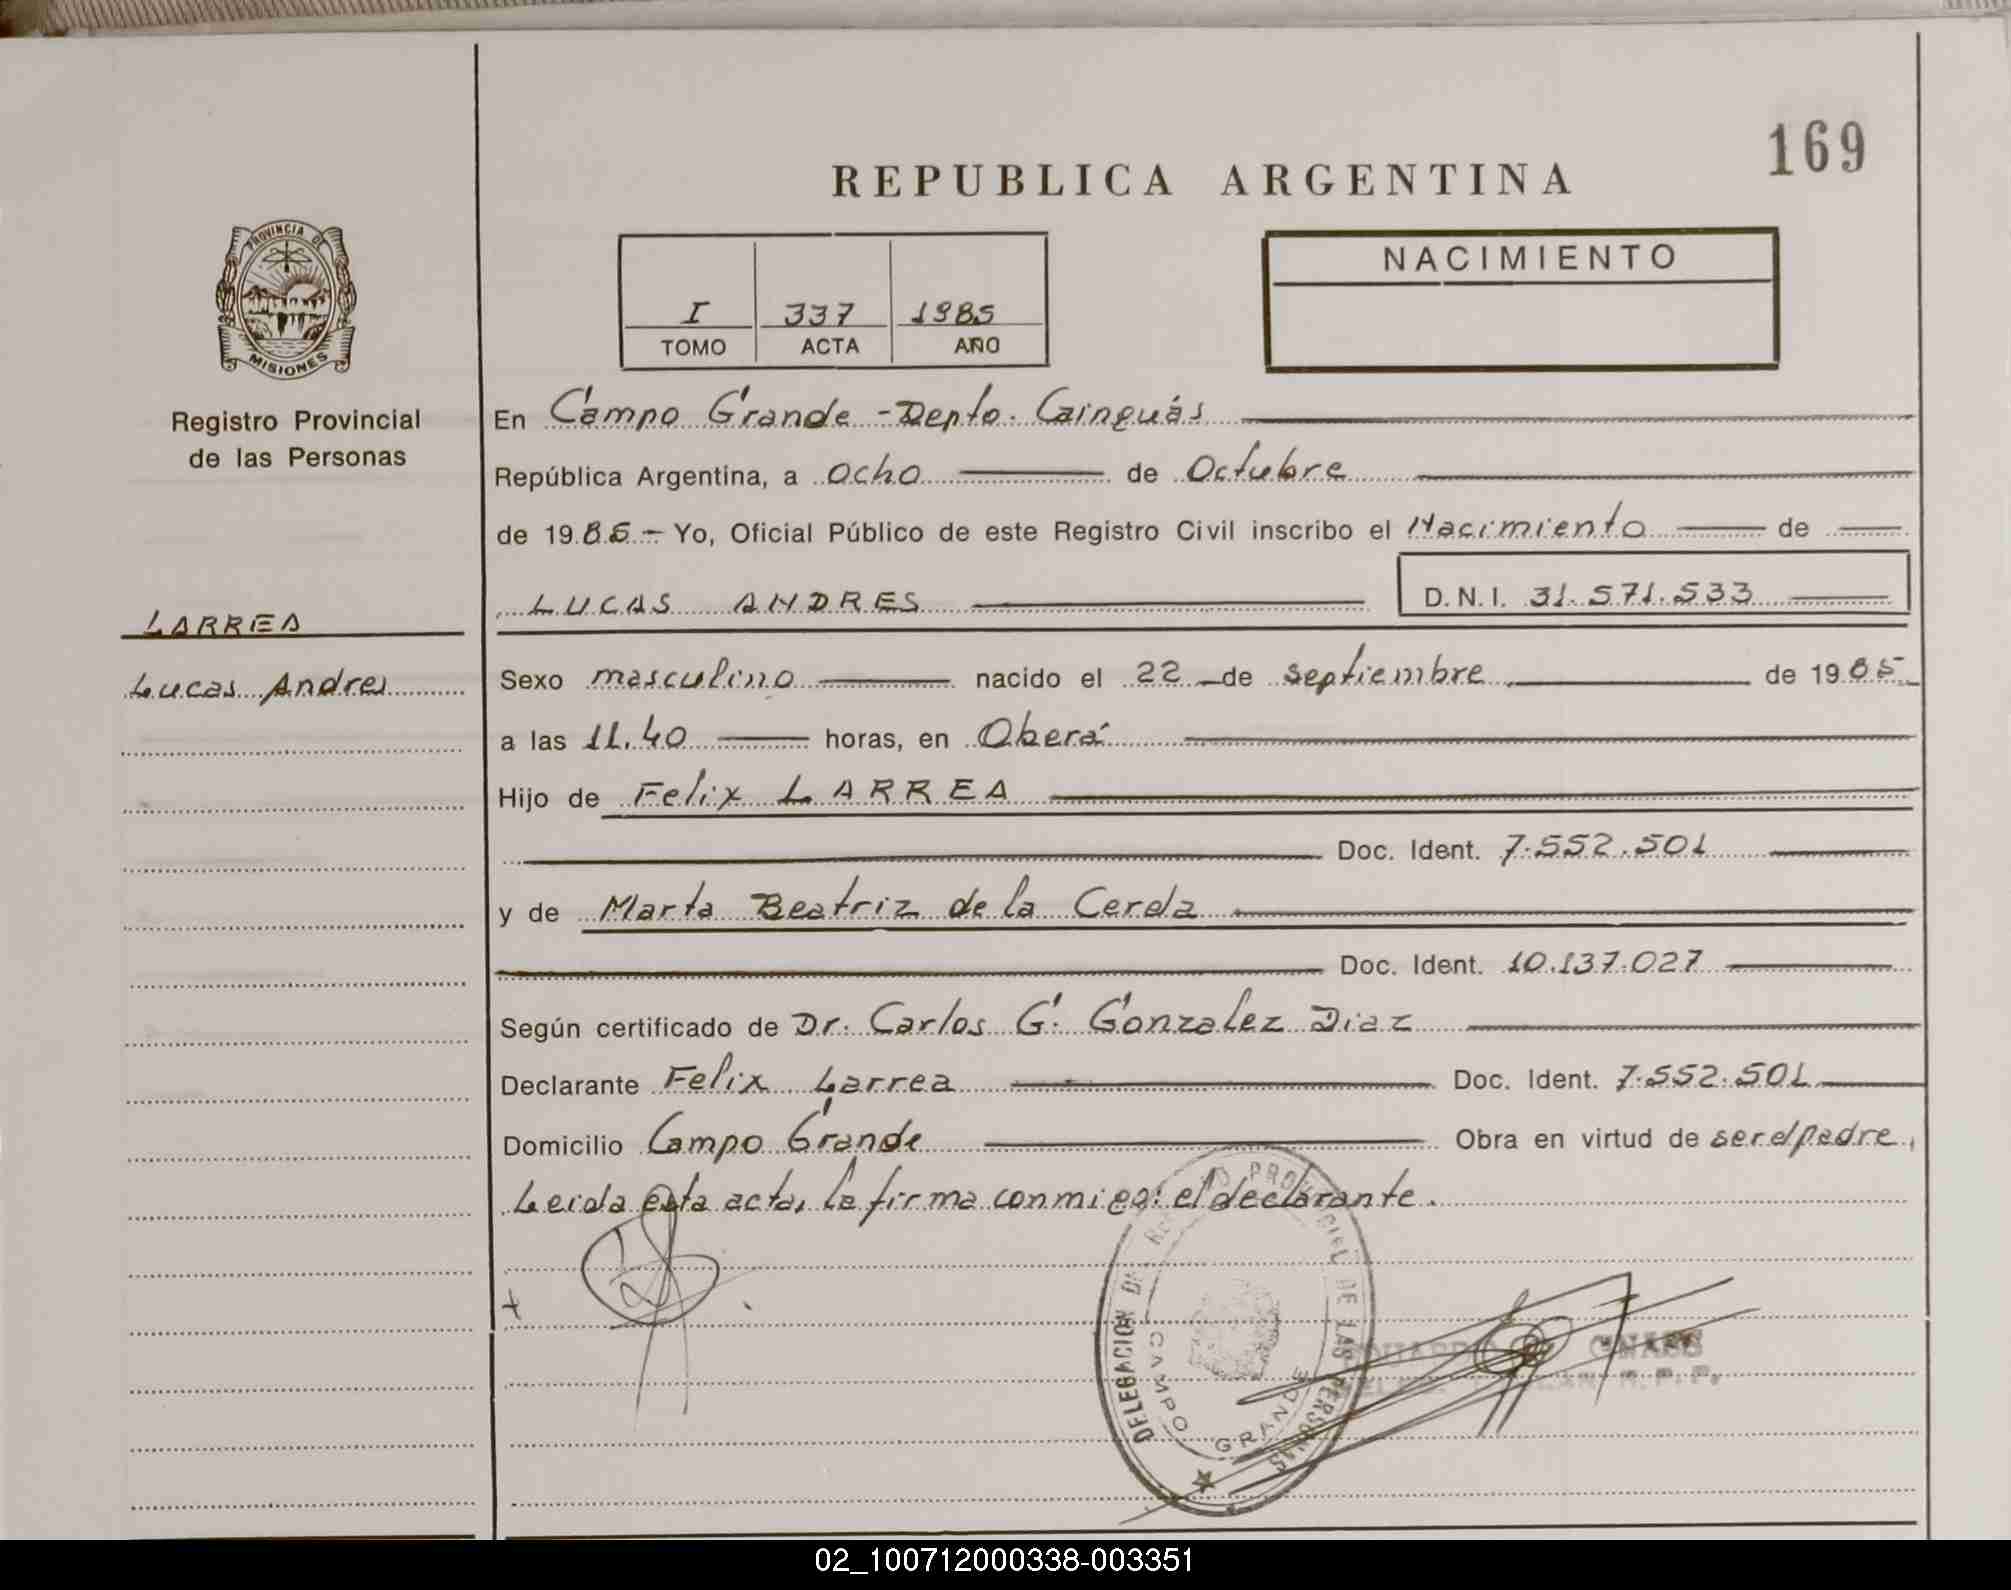 169
REPUBLICA ARGENTINA
PROVINCIA DE
MISIONES
Registro Provincial
de las Personas
I 337 1985
TOMO ACTA AÑO
NACIMIENTO
En Campo Grande - Depto. Cainguás
República Argentina, a Ocho de Octubre
de 1985 - Yo, Oficial Público de este Registro Civil inscribo el Nacimiento de
LUCAS ANDRES D.N.I. 31.571.533
LARREA
Lucas Andres
Sexo masculino nacido el 22 de septiembre de 1985
a las 11.40 horas, en Oberá
Hijo de Felix LARREA
Doc. Ident. 7.552.501
y de Marta Beatriz de la Cerda
Doc. Ident. 10.137.027
Según certificado de Dr. Carlos G. Gonzalez Diaz
Declarante Felix Larrea Doc. Ident. 7.552.501
Domicilio Campo Grande Obra en virtud de ser el padre,
Leida esta acta, la firma conmigo: el declarante.
DELEGACION DEL REGISTRO PROVINCIAL DE LAS PERSONAS
CAMPO GRANDE
02_100712000338-003351